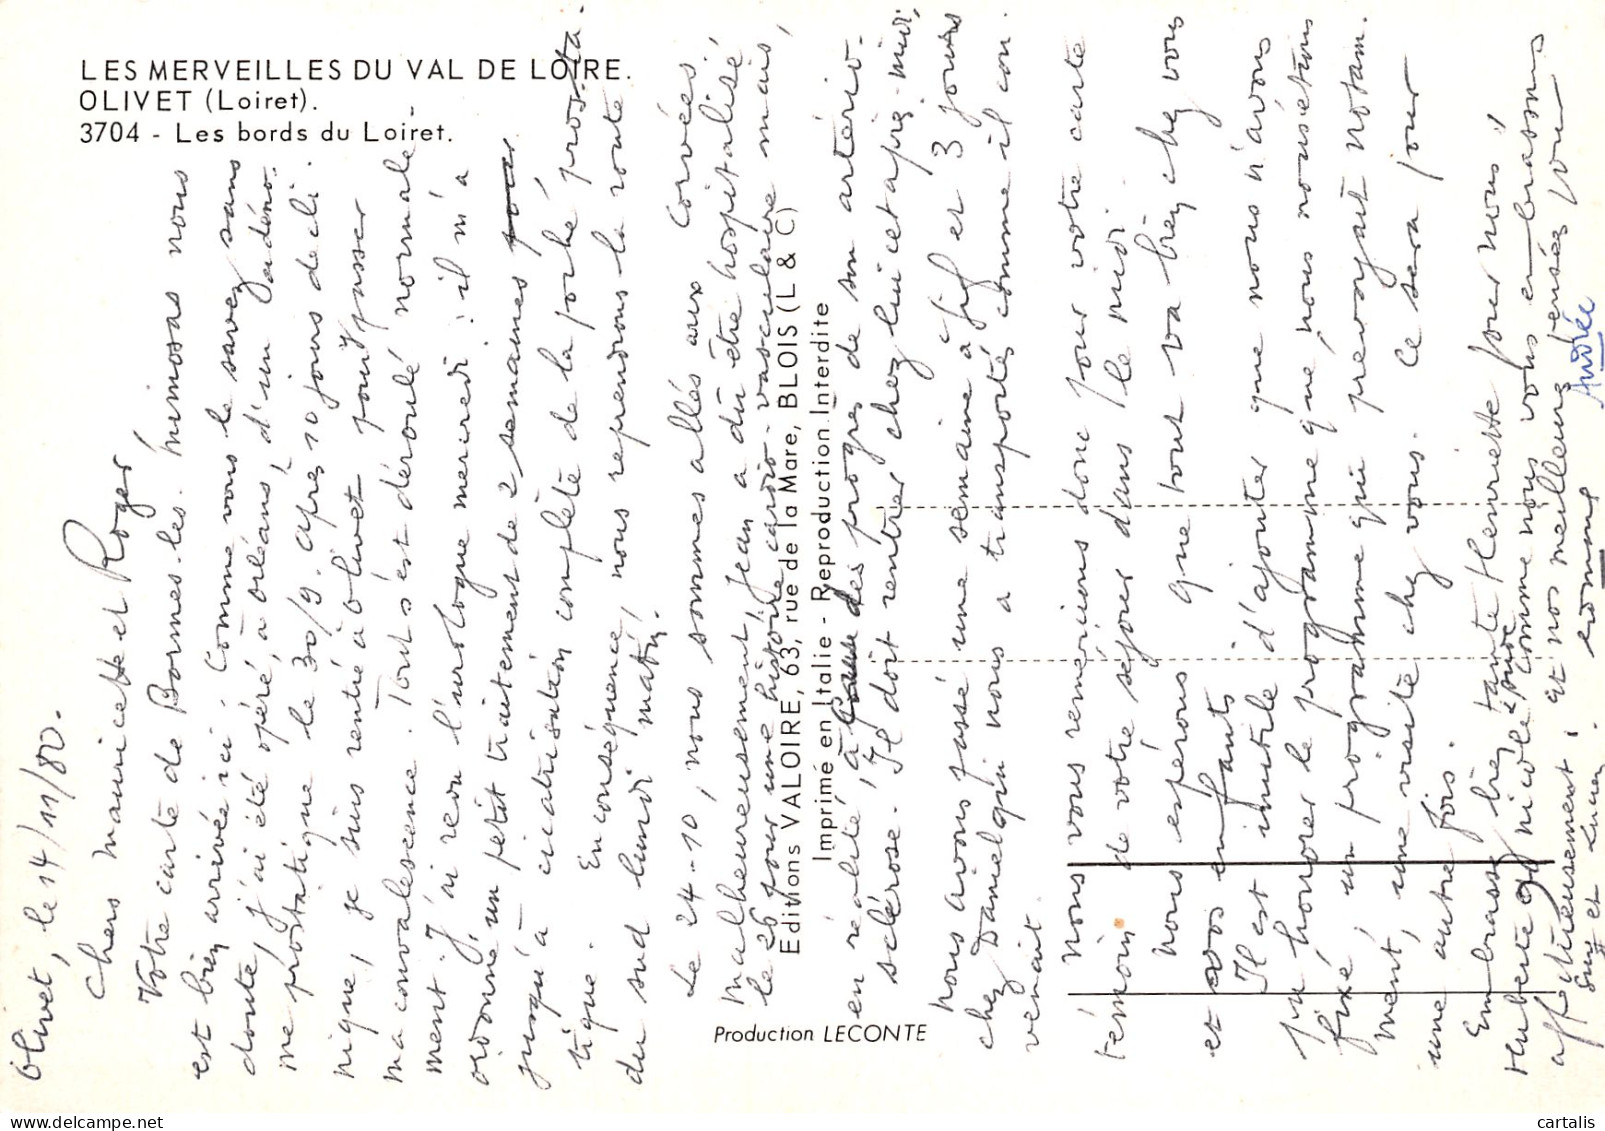 LES MERVEILLES DU VAL DE LOIRE.
OLIVET (Loiret).
3704 - Les bords du Loiret.
Editions VALOIRE, 63, rue de la Mare, BLOIS (L & C)
Imprimé en Italie - Reproduction Interdite
Production LECONTE
Olivet, le 14/11/80.
Chers Mauricette et Roger,
Votre carte de Bormes-les-Mimosas nous
est bien arrivée ici. Comme vous le savez sans
doute, j'ai été opéré, à Orléans, d'un adéno-
me prostatique le 30/9. Après 10 jours de cli-
nique, je suis rentré à Olivet pour y passer
ma convalescence. Tout s'est déroulé normale-
ment. J'ai revu l'urologue mercredi : il m'a
ordonné un petit traitement de 2 semaines
jusqu'à cicatrisation complète de la poche prosta-
tique. En conséquence, nous reprendrons la route
du sud lundi matin.
Le 24-10, nous sommes allés aux Corvées.
Malheureusement, Jean a dû être hospitalisé
le 26 pour une histoire cardio-vasculaire mais,
en réalité, à cause des progrès de son artério-
sclérose. Il doit rentrer chez lui cet après-midi,
Nous avons passé une semaine à Gif et 3 jours
chez Daniel qui nous a transportés comme il con-
venait.
Nous vous remercions donc pour votre carte
témoin de votre séjour dans le midi.
Nous espérons que tout va bien chez vous
et vos enfants.
Il est inutile d'ajouter que nous n'avons
pu honorer le programme que nous nous étions
fixé, un programme qui prévoyait notam-
ment, une visite chez vous. Ce sera pour
une autre fois.
Embrassez bien tante Henriette pour nous,
Hubert et Nicole aussi comme nous vous embrassons
affectueusement. Et nos meilleures pensées pour
Guy et Luce.
Andrée